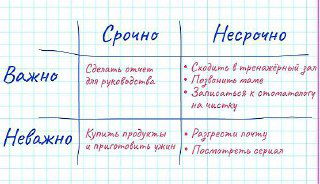 Срочно
Несрочно
Важно
Сделать отчет
для руководства
• Сходить в тренажёрный зал
• Позвонить маме
• Записаться к стоматологу
на чистку
Неважно
Купить продукты
и приготовить ужин
• Разгрести почту
• Посмотреть сериал